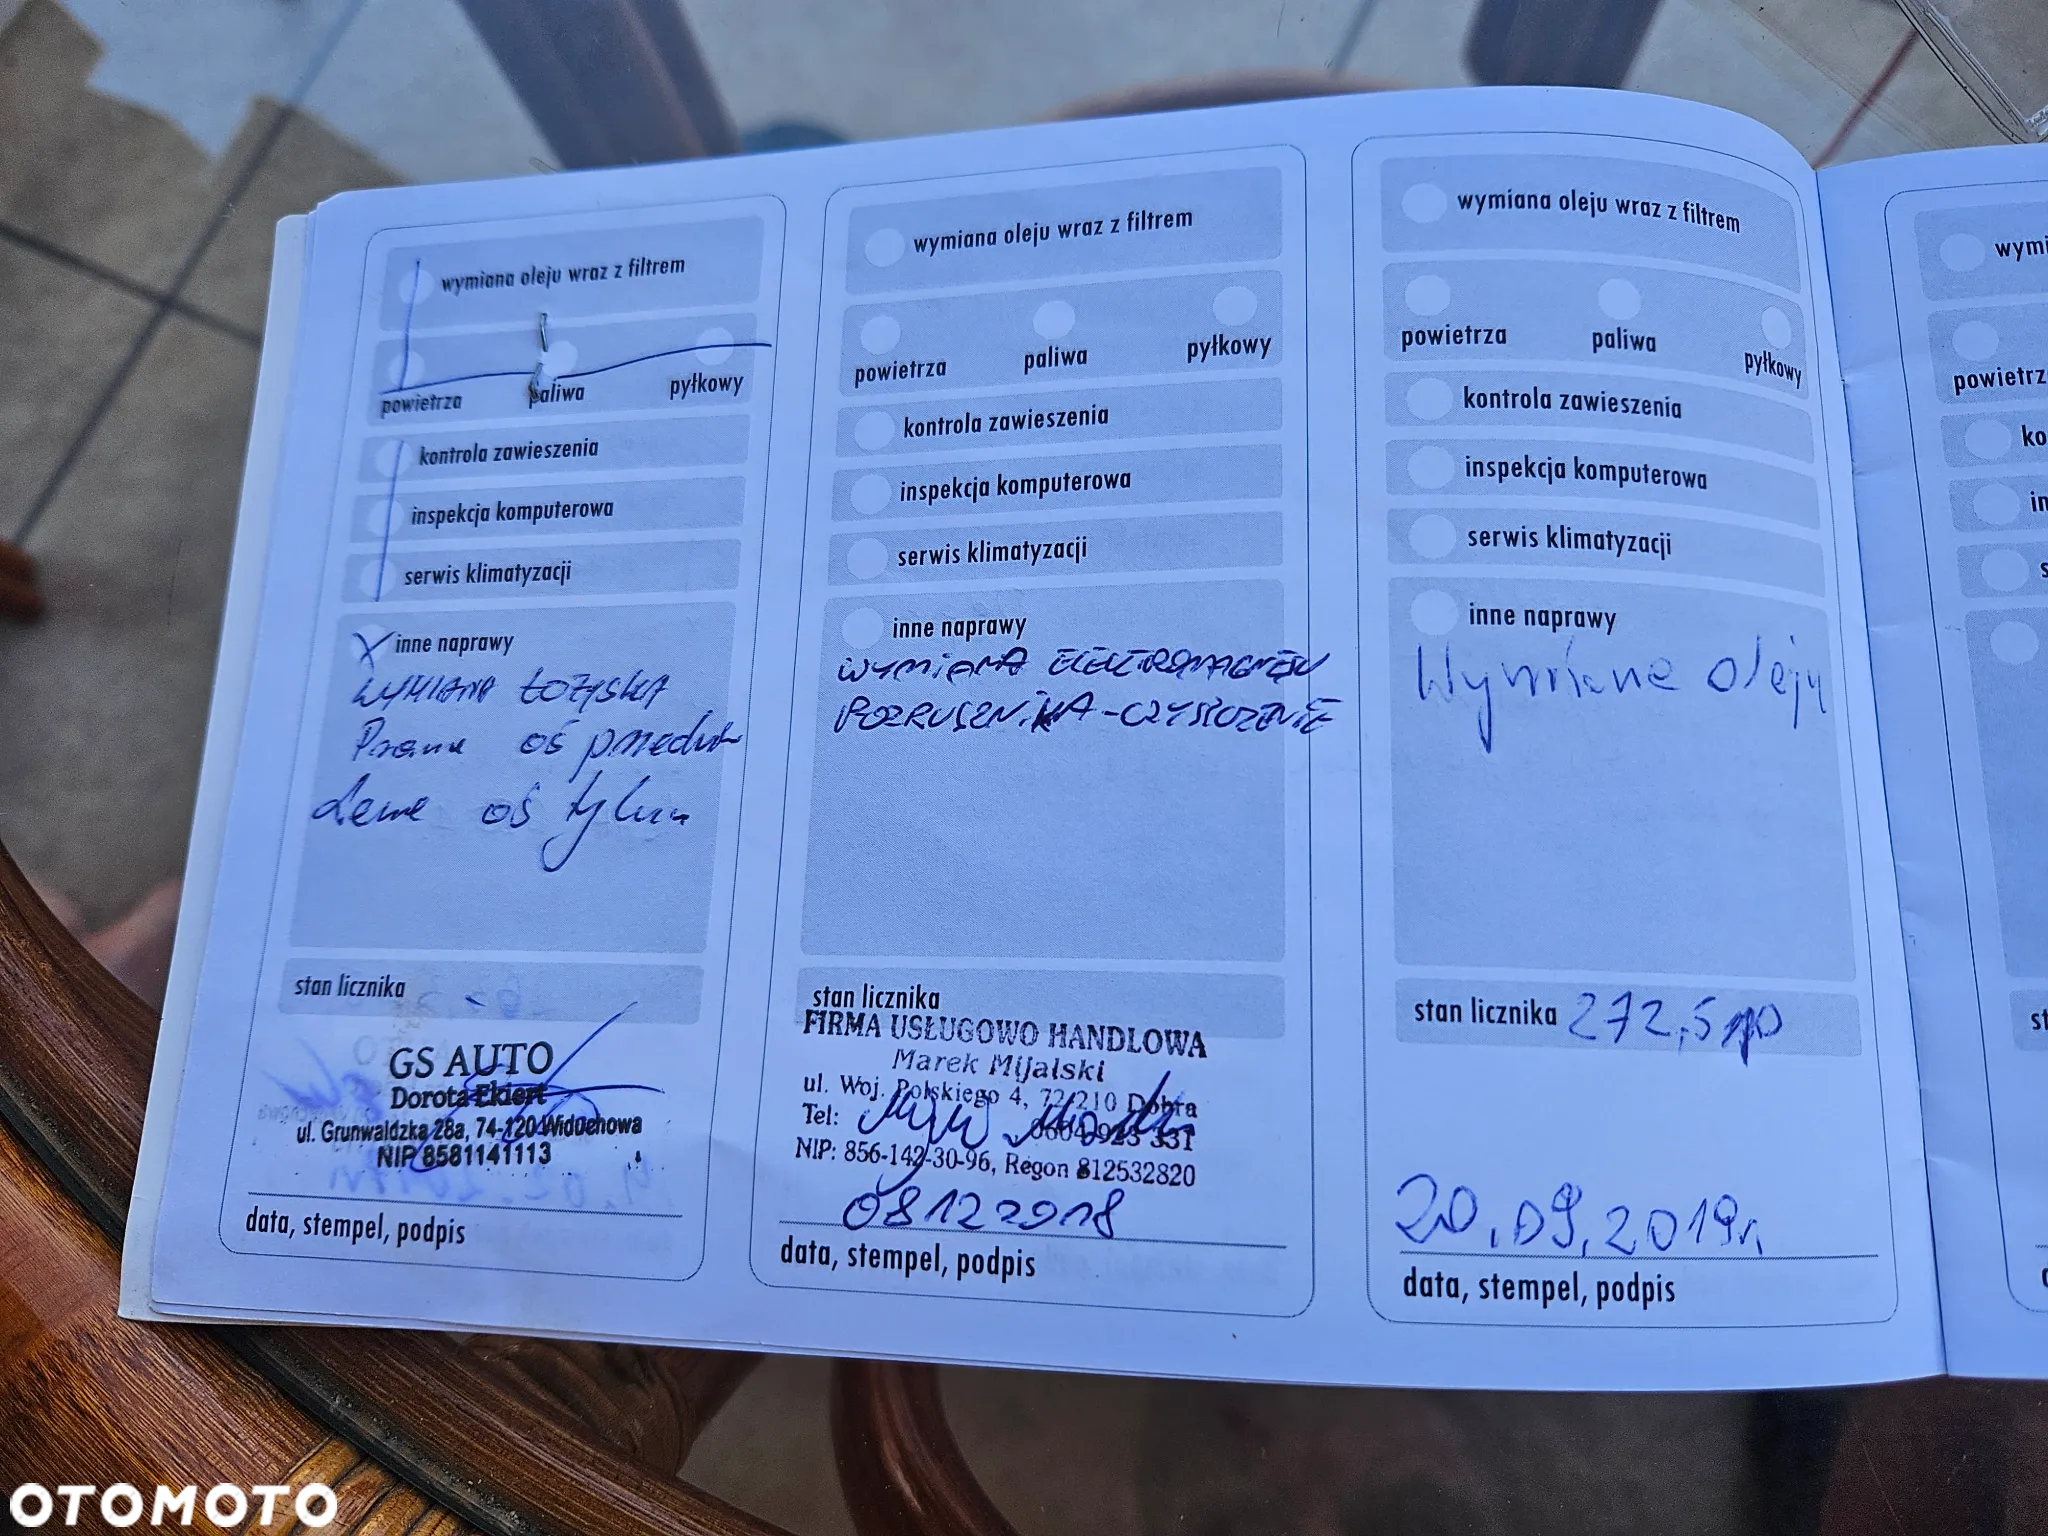 wymiana oleju wraz z filtrem
powietrza paliwa pyłkowy
kontrola zawieszenia
inspekcja komputerowa
serwis klimatyzacji
inne naprawy
WYMIANA ŁOŻYSKA
Prawe oś przednia
Lewe oś tylna
stan licznika
GS AUTO
Dorota Ekiert
ul. Grunwaldzka 28a, 74-120 Widuchowa
NIP 8581141113
data, stempel, podpis
wymiana oleju wraz z filtrem
powietrza paliwa pyłkowy
kontrola zawieszenia
inspekcja komputerowa
serwis klimatyzacji
inne naprawy
WYMIANA ELEKTROMAGNESU
ROZRUSZNIKA - CZYSZCZENIE
stan licznika
FIRMA USŁUGOWO HANDLOWA
Marek Mijalski
ul. Woj. Polskiego 4, 72-210 Dobra
Tel: 0604 923 331
NIP: 856-142-30-96, Regon 812532820
08 12 2018
data, stempel, podpis
wymiana oleju wraz z filtrem
powietrza paliwa pyłkowy
kontrola zawieszenia
inspekcja komputerowa
serwis klimatyzacji
inne naprawy
Wymiana oleju
stan licznika 272,5
20.09.2019r.
data, stempel, podpis
wymi
powietrz
ko
in
s
st
OTOMOTO